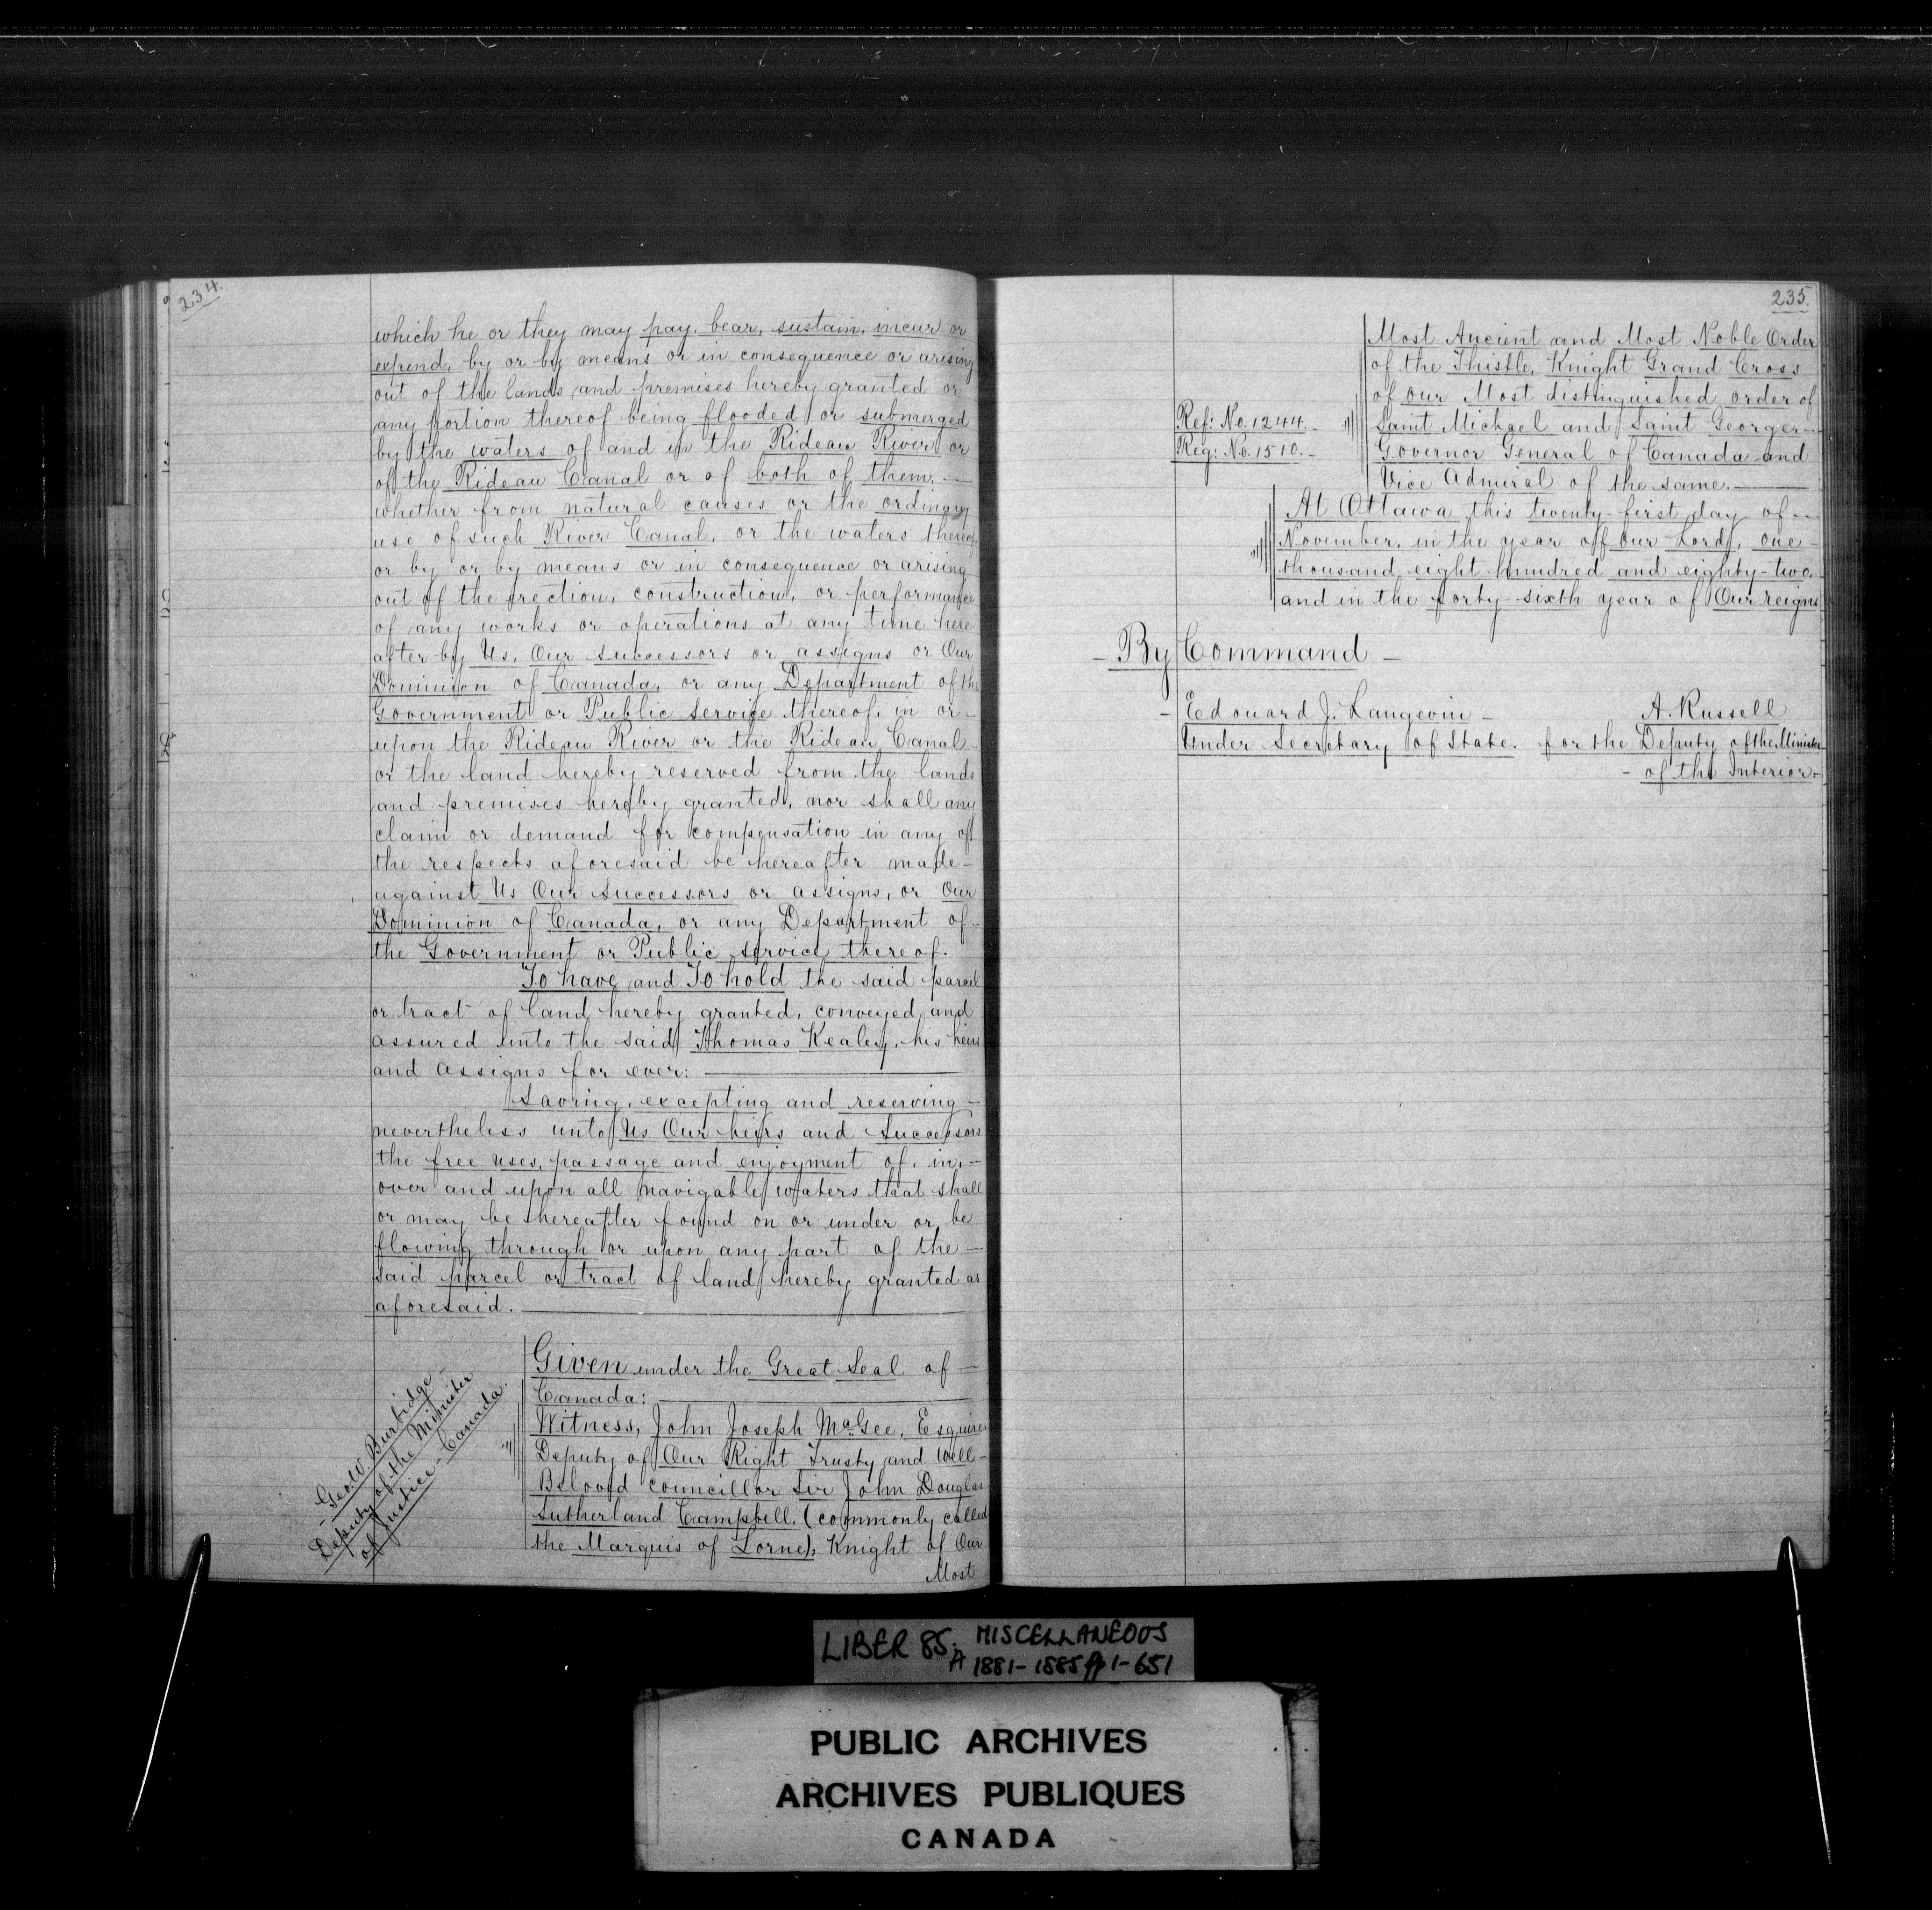 234.
which he or they may pay, bear, sustain, incur or
expend, by or by means or in consequence or arising
out of the lands and premises hereby granted or
any portion thereof being flooded or submerged
by the waters of and in the Rideau River or
of the Rideau Canal or of both of them, —
whether from natural causes or the ordinary
use of such River Canal, or the waters thereof
or by or by means or in consequence or arising
out of the erection, construction, or performance
of any works or operations at any time here
after by Us, Our Successors or assigns or Our
Dominion of Canada, or any Department of the
Government or Public Service thereof, in or -
upon the Rideau River or the Rideau Canal
or the land hereby reserved from the lands
and premises hereby granted, nor shall any
claim or demand for compensation in any of
the respects aforesaid be hereafter made -
against Us Our Successors or assigns, or Our
Dominion of Canada, or any Department of -
the Government or Public service thereof.
To have and To hold the said parcel
or tract of land hereby granted, conveyed and
assured unto the said Thomas Kealey, his heirs
and assigns for ever: —
Saving, excepting and reserving -
nevertheless unto Us Our heirs and Successors
the free uses, passage and enjoyment of, in, -
over and upon all navigable waters that shall
or may be hereafter found on or under or be
flowing through or upon any part of the —
said parcel or tract of land hereby granted as
aforesaid. —
Given under the Great Seal of —
Canada: —
Witness, John Joseph McGee, Esquire
Deputy of Our Right Trusty and Well -
Beloved Councillor Sir John Douglas
Sutherland Campbell, (commonly called
the Marquis of Lorne), Knight of Our
Most
- Geo. W. Burbidge -
Deputy of the Minister
of Justice - Canada.
235.
Most Ancient and Most Noble Order
of the Thistle, Knight Grand Cross
of Our Most distinguished order of
Saint Michael and Saint George -
Governor General of Canada and
Vice Admiral of the same. —
Ref: No. 1244. -
Reg: No. 1510. -
At Ottawa this twenty-first day of -
November, in the year of Our Lord, one -
thousand eight hundred and eighty-two,
and in the forty sixth year of Our reign
- By Command -
- Edouard J. Langevin -
Under Secretary of State.
A. Russell
for the Deputy of the Minister
- of the Interior -
LIBER 85. A MISCELLANEOUS
1881-1885 pp 1-651
PUBLIC ARCHIVES
ARCHIVES PUBLIQUES
CANADA